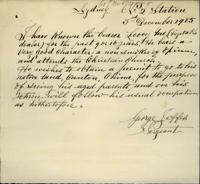 Sydney No 2 Station
5 December 1925
I have known the bearer Leong Jue (Vegetable
dealer) for the past 9 or 10 years. He bears a
very good character, a non-smoker of opium,
and attends the Christian Church.
He wishes to obtain a permit to go to his
native land, Canton, China, for the purpose
of seeing his aged parents, and on his
return will follow his usual occupation
as heretofore.
George
Sergeant